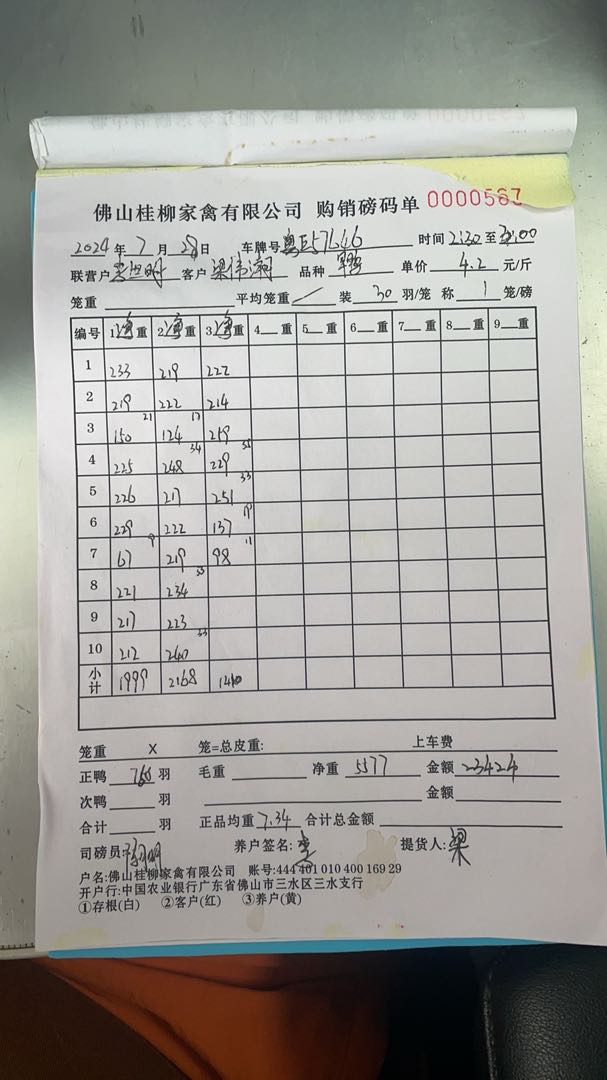 佛山桂柳家禽有限公司 购销磅码单 0000567
2024年7月28日 车牌号 粤E57646 时间 2:30至3:00
联营户 客户 梁伟 品种 单价 4.2 元/斤
笼重 平均笼重 / 装 30 羽/笼 称 1 笼/磅
编号 1净重 2净重 3净重 4 重 5 重 6 重 7 重 8 重 9 重
1 233 219 222
2 219 222 214
3 150 21 124 17 219
4 225 248 34 229 35
5 226 217 251 33
6 229 222 137 19
7 67 9 219 98 11
8 221 234 33
9 217 223
10 212 240 33
小计 1999 2168 1410
笼重 X 笼=总皮重: 上车费
正鸭 760 羽 毛重 净重 5577 金额 23424
次鸭 羽 金额
合计 羽 正品均重 7.34 合计总金额
司磅员: 养户签名: 李 提货人: 梁
户名:佛山桂柳家禽有限公司 账号:444 401 010 400 169 29
开户行:中国农业银行广东省佛山市三水区三水支行
①存根(白) ②客户(红) ③养户(黄)